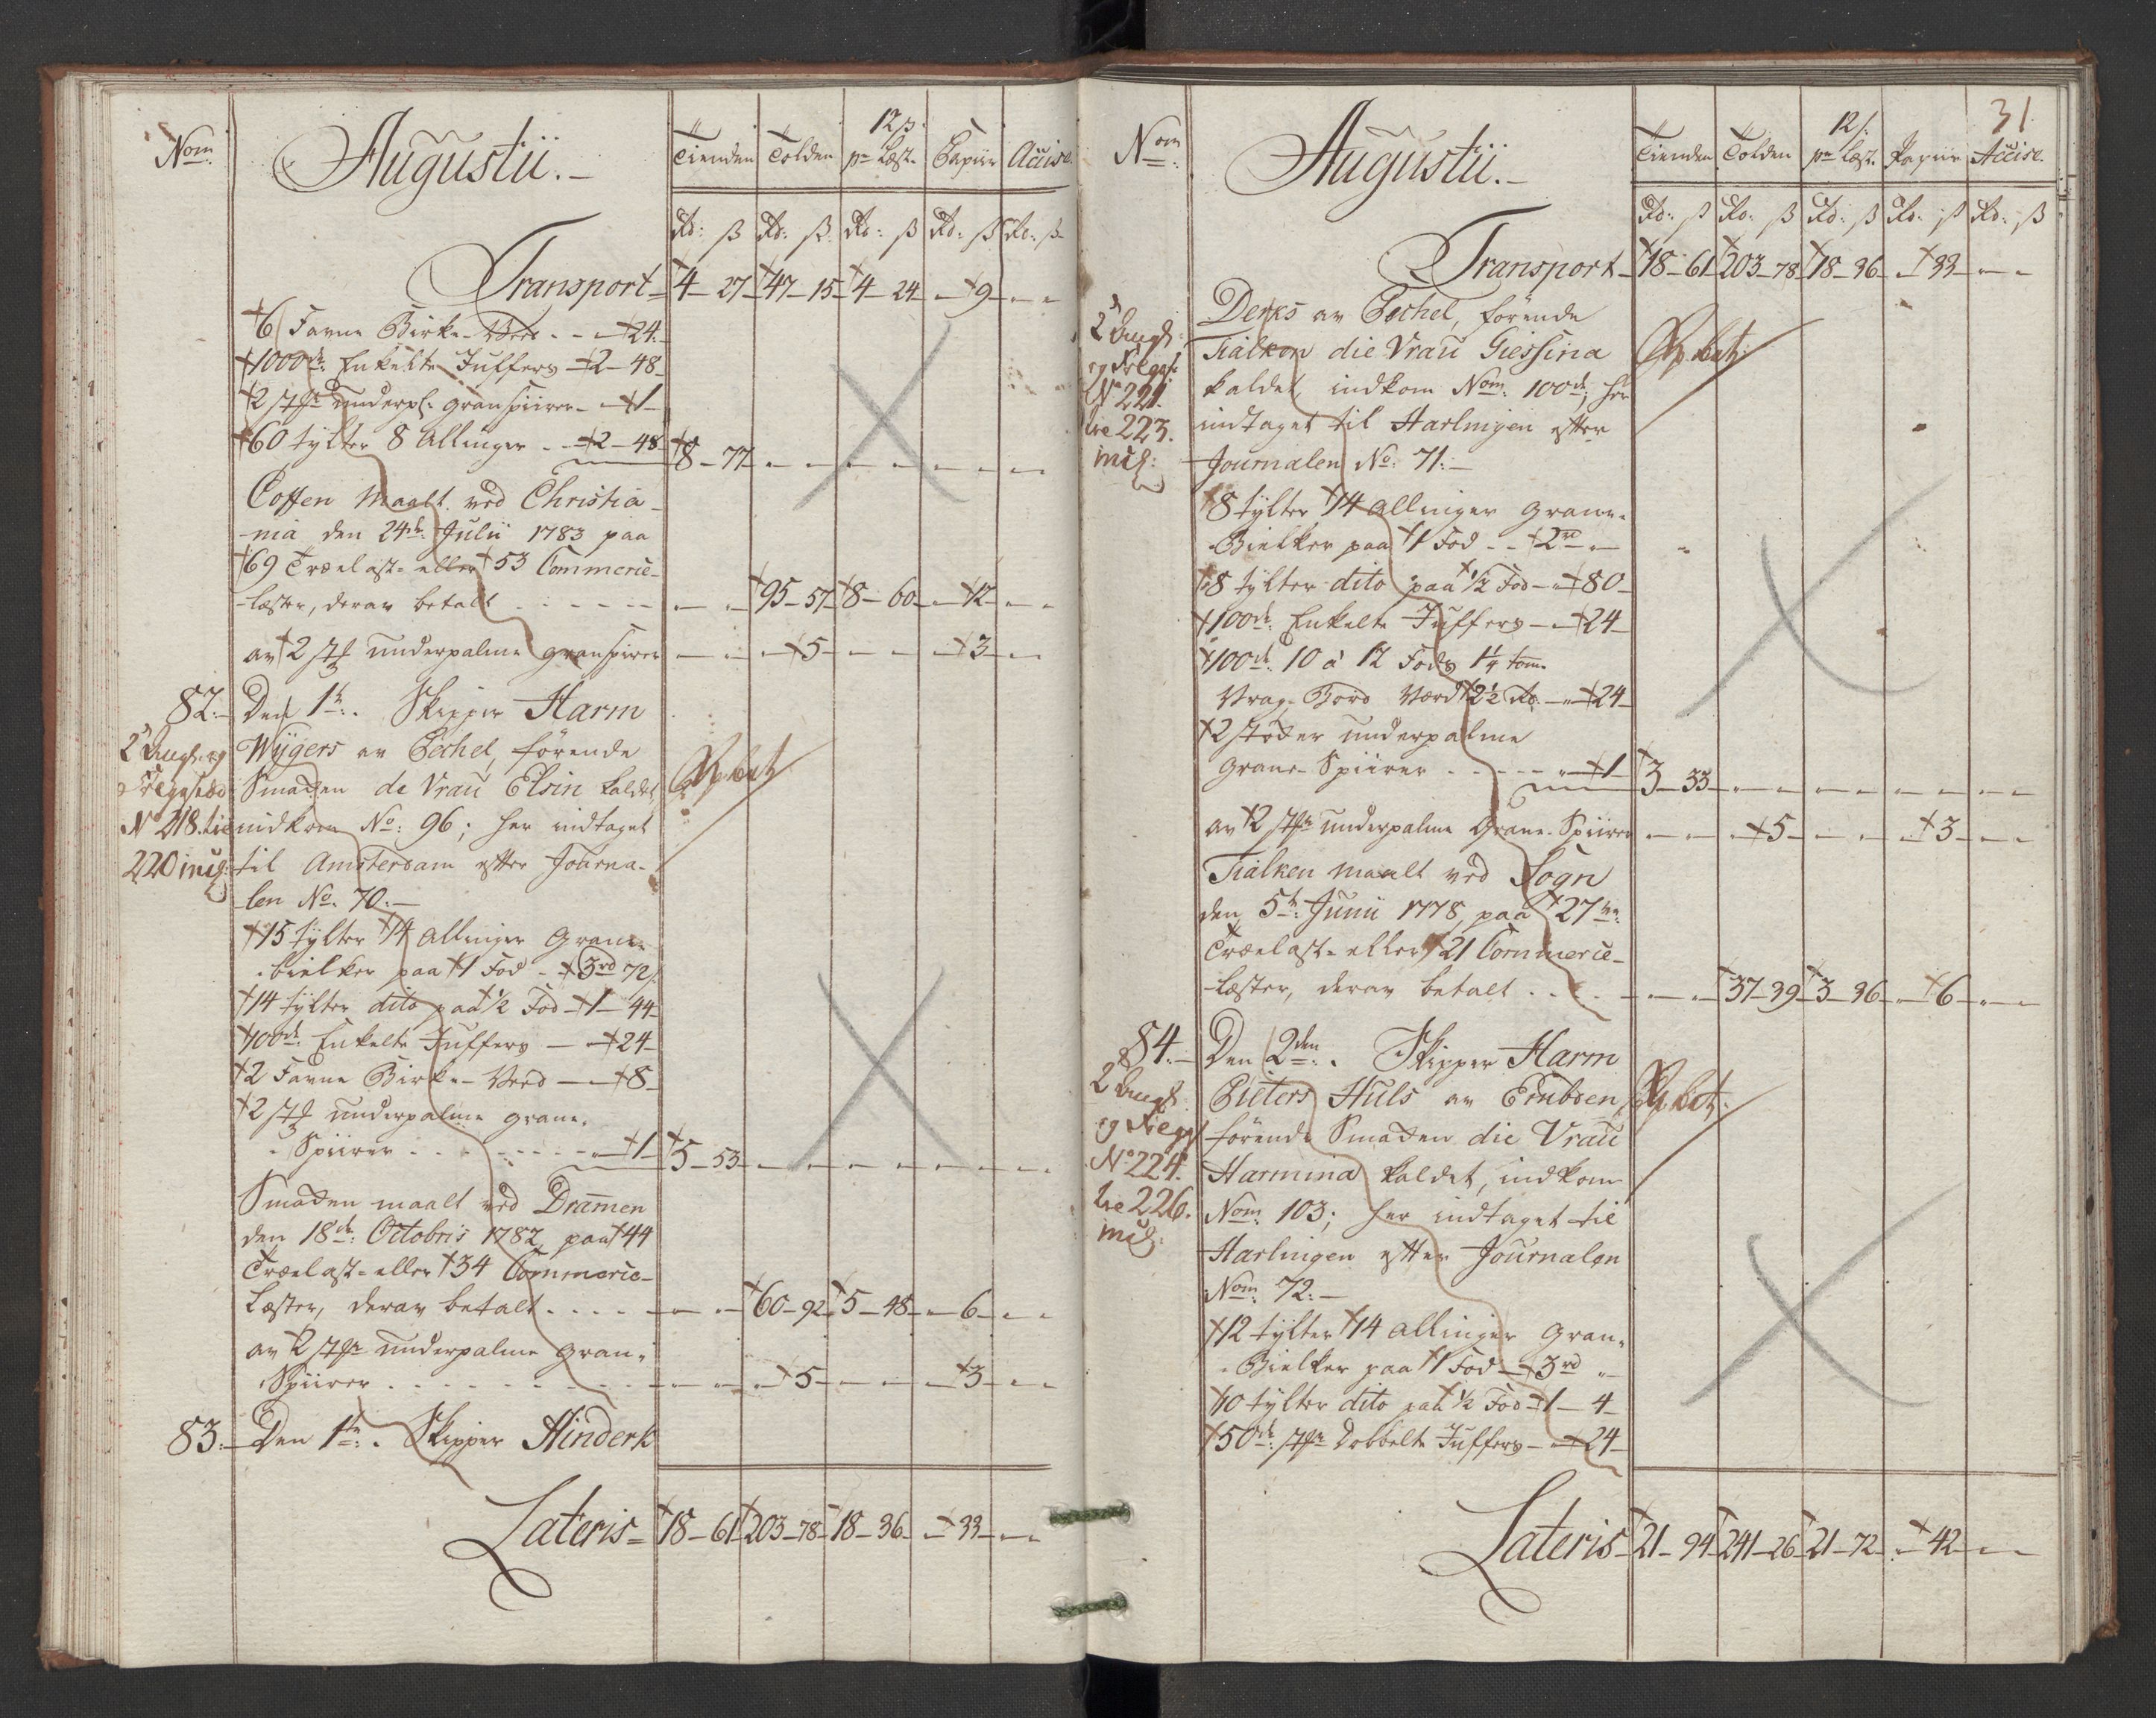 Nom:
Augustii.
Tienden
Tolden
12 ß.
pr Læst.
Papiir
Accise.
Rd: ß Rd: ß Rd: ß Rd: ß Rd: ß
Transport 4 27 47 15 4 24 " 9 " "
6 Favne Birke-Veed " 24.
1000de Enkelte Juffers 2 48
2 stkr underpl: granspiirer " 1
60 tylter 8 Allinger 2 48 8 77 " " " " " " " "
Coffen maalt ved Christia-
nia den 24de Julii 1783 paa
69 Trælast- eller 53 Commerce-
læster, derav betalt " " 95 57 8 60 " 12 " "
av 2 stk underpalme granspirer " " " 5 " " " 3 " "
82. Den 1te. Skipper Harm
Wÿgers av Pechel, førende
Smakken de Vrau Elsin kaldet,
indkom No: 96; her indtaget
til Amsterdam efter Journa-
len No. 70.
2 Angl. og
Følgesed
No 218. tie
220 incl:
15 tylter 14 allinger Grane-
bielker paa 1 Fod 3 rd 72
14 tylter dito paa 1/2 Fod 1 44
100de Enkelte Juffers " 24
2 Favne Birke-Veed " 8
2 stk underpalme grane-
Spiirer " 1 5 53 " " " " " " " "
Smakken maalt ved Dramen
den 18de Octobris 1782 paa 44
Trælast- eller 34 Commerce-
Læster, derav betalt " " 60 92 5 48 " 6 " "
av 2 stkr underpalme Gran-
Spiirer " " " 5 " " " 3 " "
83. Den 1te. Skipper Hinderk
Lateris 18 61 203 78 18 36 " 33 " "
31.
Nom
Augustii.
Tienden
Tolden
12 ß.
pr Læst.
Papiir
Accise.
Rd: ß Rd: ß Rd: ß Rd: ß Rd: ß
Transport 18 61 203 78 18 36 " 33 " "
Derks av Pechel, førende
Tialken die Vrau Giessina
kaldet, indkom Nom: 100de; her
indtaget til Harlingen efter
Journalen No: 71.
No 221.
tie 223.
incl:
8 tylter 14 allinger Grane-
Bielker paa 1 Fod 2 rd "
8 tylter dito paa 1/2 Fod " 80
100de Enkelte Juffers " 24
100de 10 à 12 Fods 1 1/4 tom.
Vrag-Bord Værd 2 1/2 Rd. " 24
2 støkker underpalme
Grane-Spiirer " 1 3 33 " " " " " " " "
av 2 stkr underpalme Grane-Spiirer " " " 5 " " " 3 " "
Tialken maalt ved Sogn
den 5te Junii 1778, paa 27
Trælast- eller 21 Commerce-
Læster, derav betalt " " 37 39 3 36 " 6 " "
84. Den 2den. Skipper Harm
Pieters Huls av Embden,
førende Smakken die Vrau
Harmina kaldet, indkom
Nom: 103; her indtaget til
Harlingen efter Journalen
Nom: 72.
No 224.
tie 226.
incl:
12 tylter 14 allinger Gran-
Bielker paa 1 Fod 3 rd "
10 tylter dito paa 1/2 Fod 1 4
50de stkr Dobbelte Juffers " 24
Lateris 21 94 241 26 21 72 " 42 " "